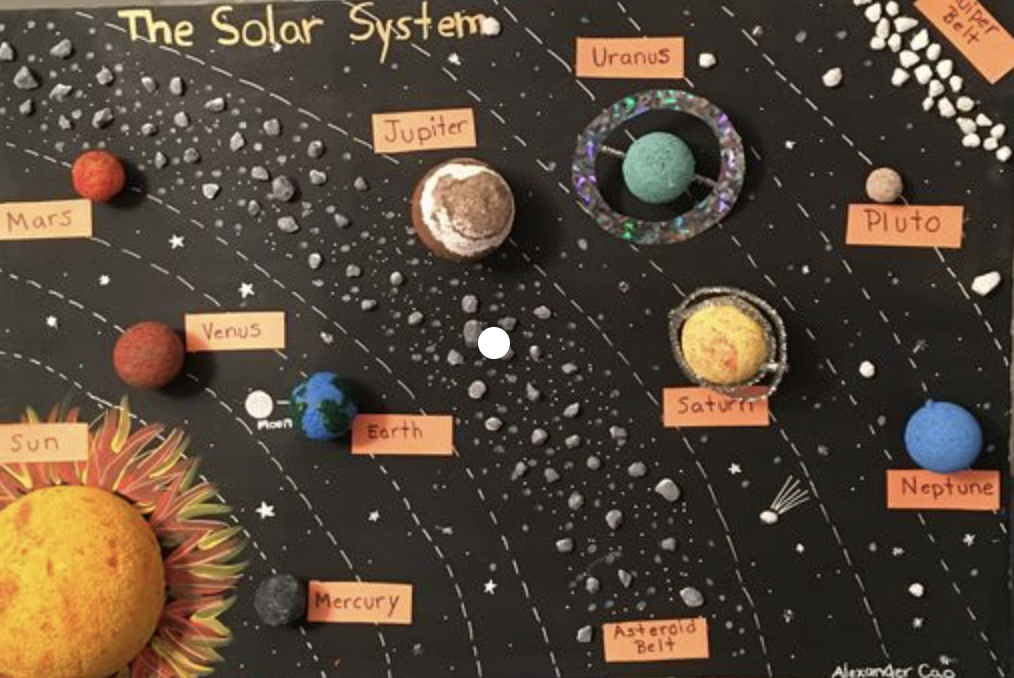 The Solar System
Kuiper
Belt
Uranus
Jupiter
Mars
Pluto
Venus
Saturn
Moon
Earth
Sun
Neptune
Mercury
Asteroid
Belt
Alexander Cao